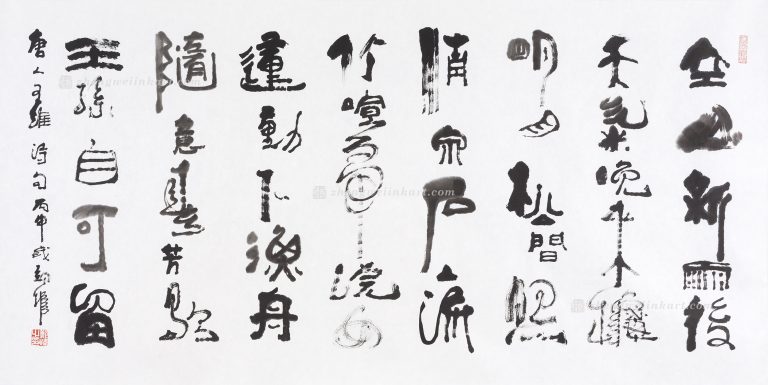 空山新雨後
天氣晚來秋
明月松間照
清泉石上流
竹喧歸浣女
蓮動下漁舟
隨意春芳歇
王孫自可留
唐人王維詩句丙申